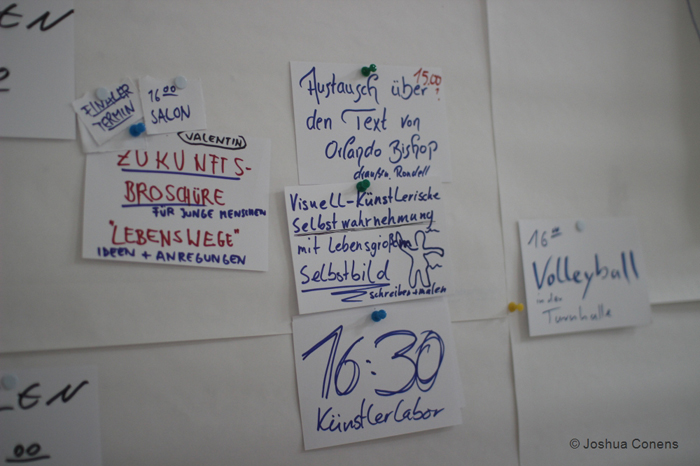 EINMALIGER
TERMIN
16 00
SALON
VALENTIN
ZUKUNFTS-
BROSCHÜRE
FÜR JUNGE MENSCHEN
"LEBENSWEGE"
IDEEN + ANREGUNGEN
15.00
Austausch über
den Text von
Orlando Bishop
draußen. Rondell
Visuell-Künstlerische
Selbstwahrnehmung
mit Lebensgroßem
Selbstbild
schreiben + malen
16:30
Künstlerlabor
16 00
Volleyball
in der
Turnhalle
LEN
00
© Joshua Conens